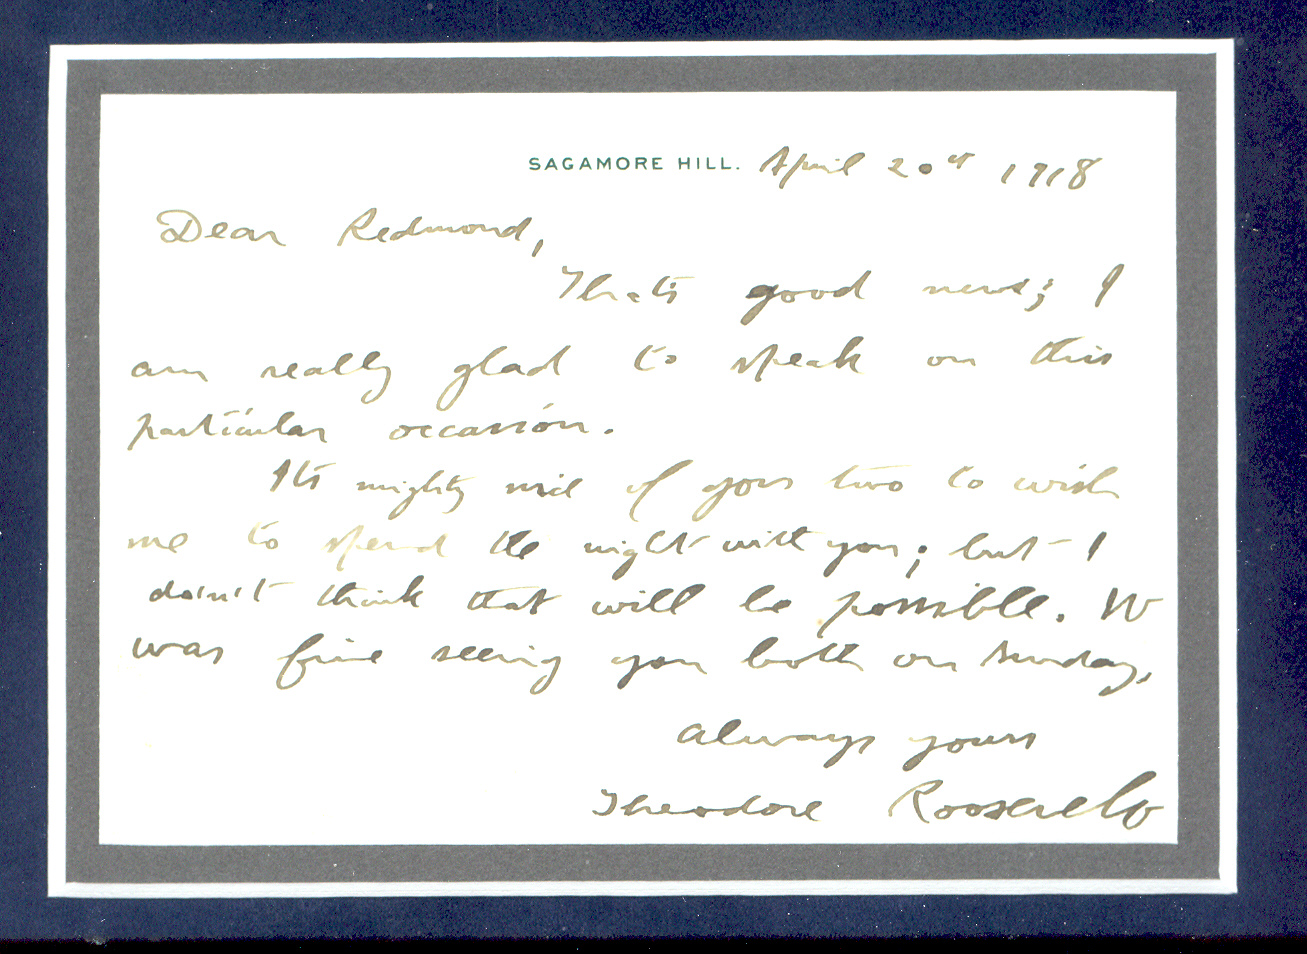 SAGAMORE HILL. April 20th 1918
Dear Redmond,
Thats good news; I
am really glad to speak on this
particular occasion.
Its mighty nice of you two to wish
me to spend the night with you; but I
don't think that will be possible. It
was fine seeing you both on Sunday.
Always yours
Theodore Roosevelt